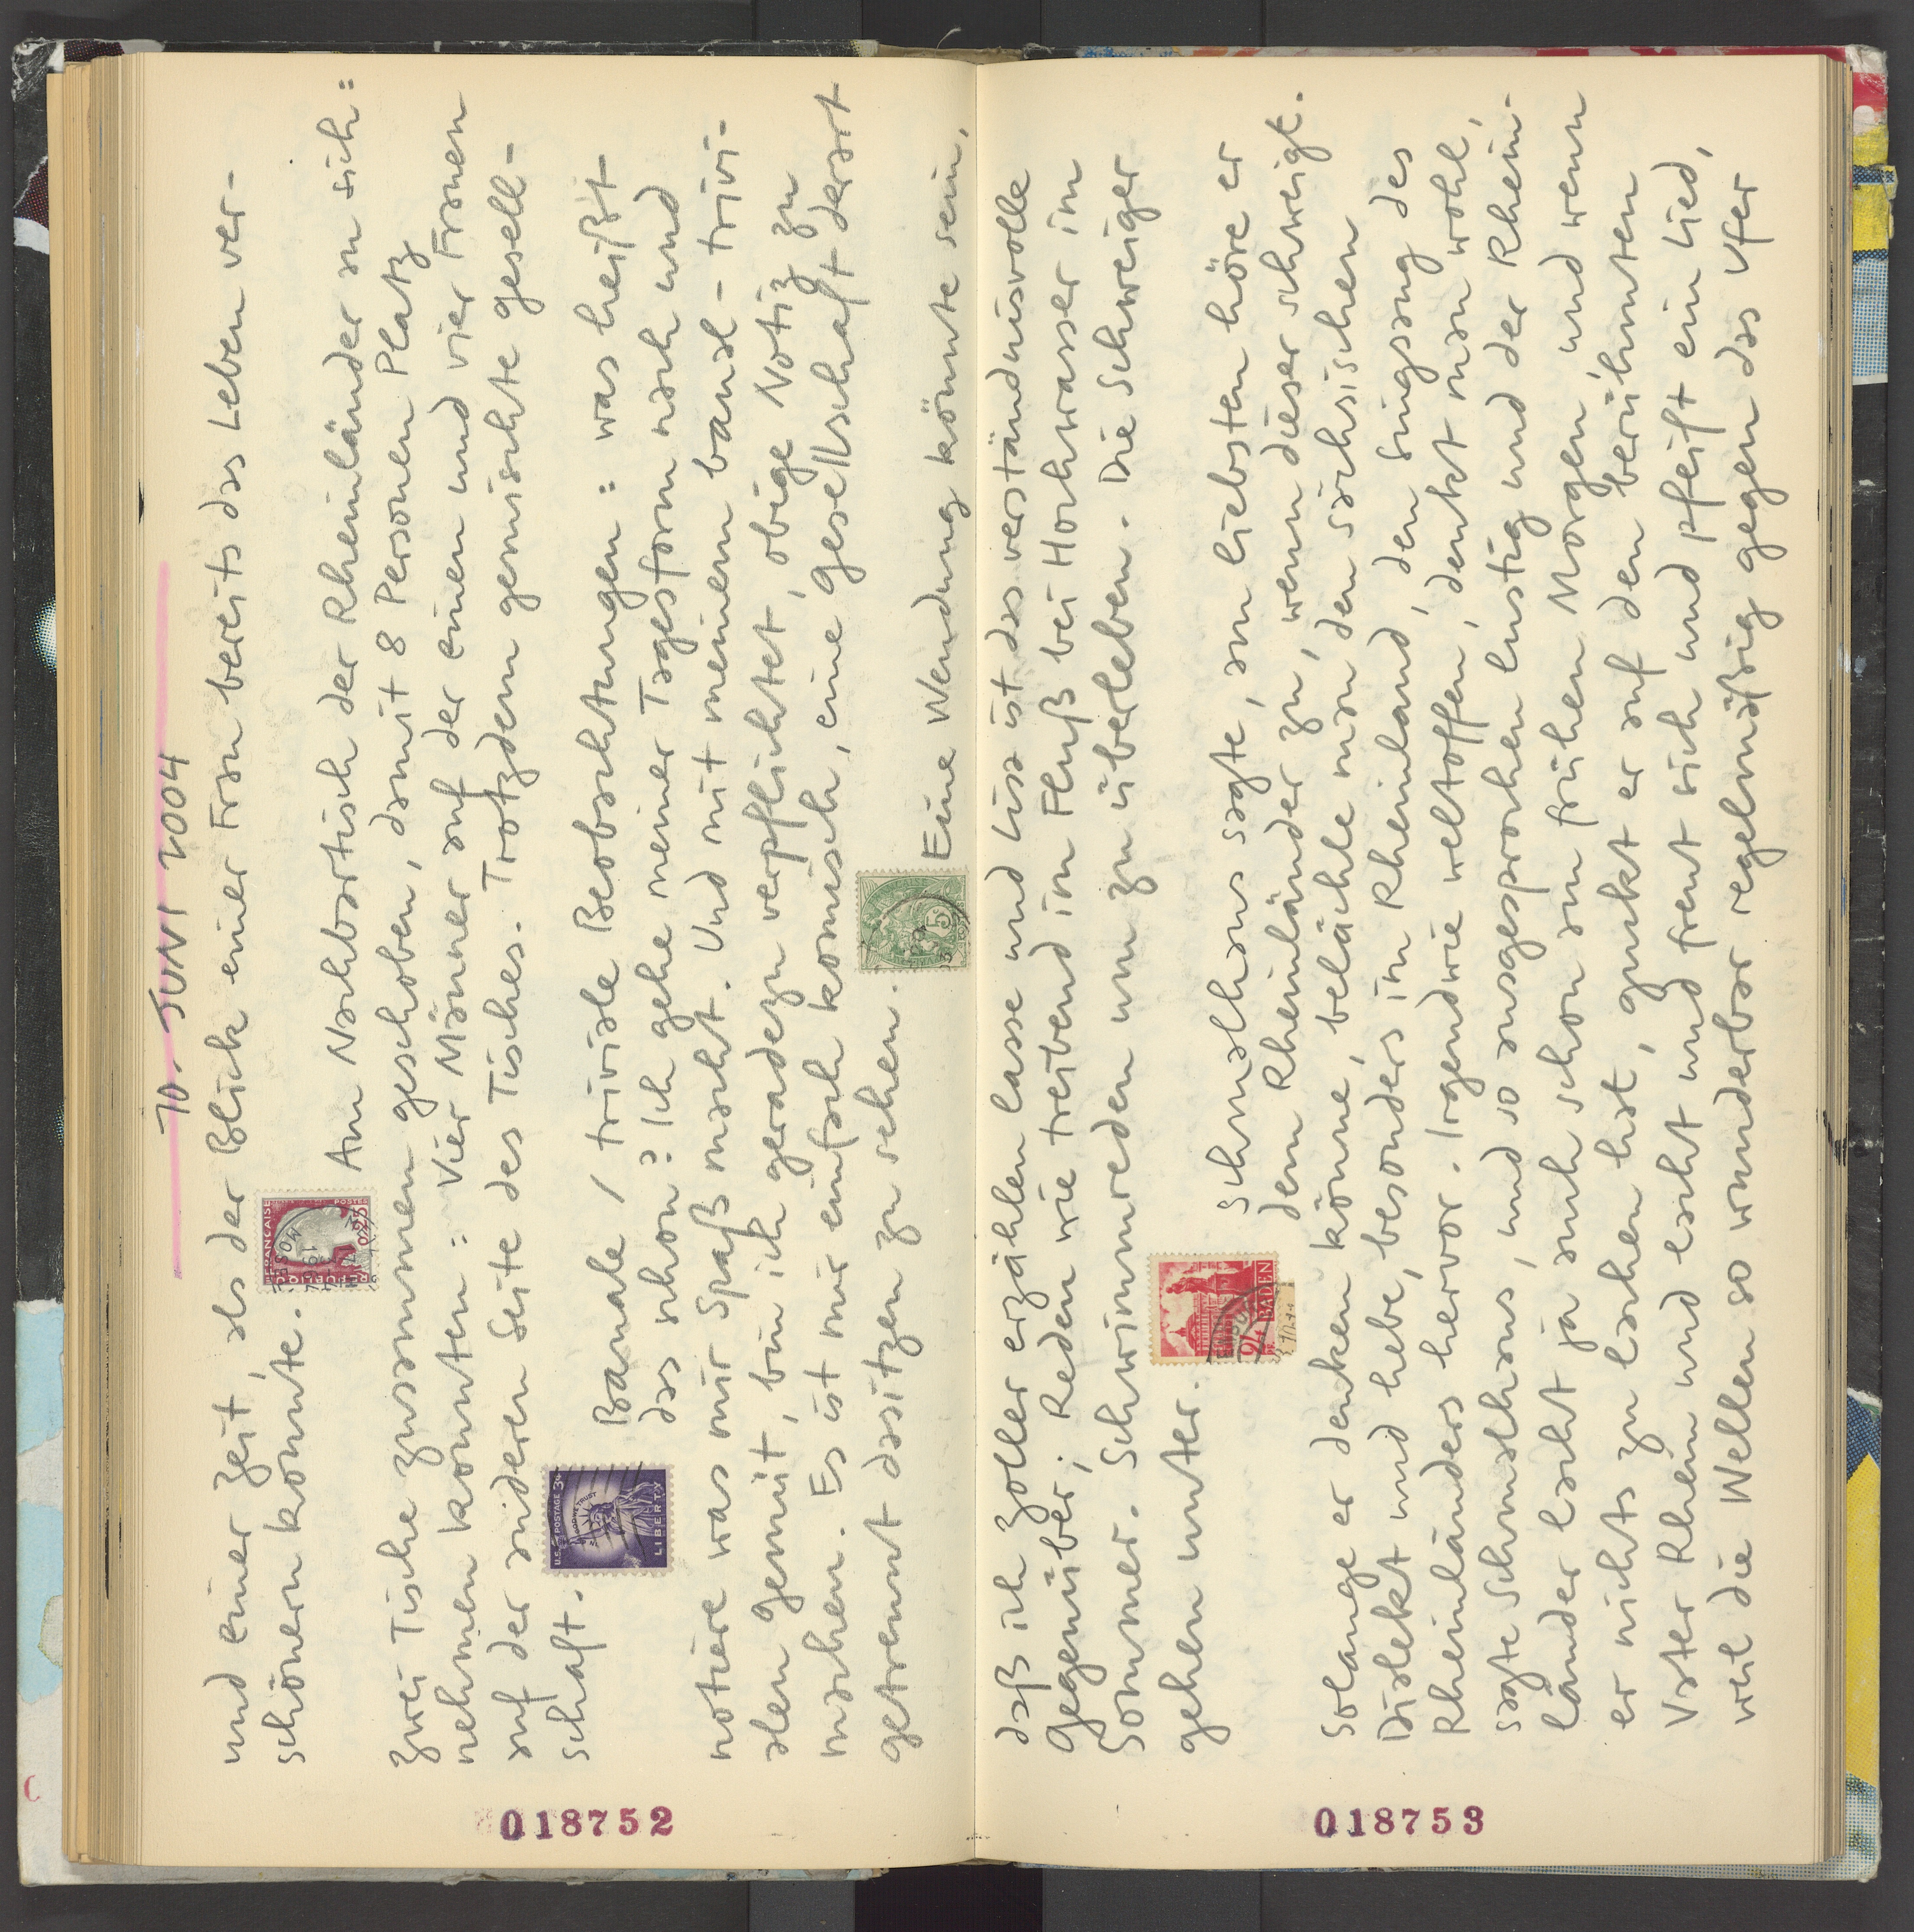 10. JUNI 2004
und einer Zeit, als der Blick einer Frau bereits das Leben ver-
schönern konnte.
Am Nachbartisch der Rheinländer an sich:
zwei Tische zusammen geschoben, damit 8 Personen Platz
nehmen konnten: Vier Männer auf der einen und vier Frauen
auf der anderen Seite des Tisches. Trotzdem gemischte Gesell-
schaft.
Banale / triviale Beobachtungen: was heißt
das schon? Ich gehe meiner Tagesform nach und
notiere was mir Spaß macht. Und mit meinem banal-trivi-
alen Gemüt, bin ich geradezu verpflichtet, obige Notiz zu
machen. Es ist mir einfach komisch, eine Gesellschaft derart
getrennt dasitzen zu sehen.
Eine Wendung könnte sein,
daß ich Zoller erzählen lasse und Lisa ist das verständnisvolle
Gegenüber; Reden wie treibend im Fluß bei Hochwasser im
Sommer. Schwimmreden um zu überleben. Die Schweiger
gehen unter.
Schmalhans sagte, am liebsten höre er
dem Rheinländer zu, wenn dieser schweigt.
Solange er denken könne, belächle man den sächsischen
Dialekt und hebe, besonders im Rheinland, den Singsang des
Rheinländers hervor. Irgendwie weltoffen, denkt man wohl,
sagte Schmalhans, und so ausgesprochen lustig und der Rhein-
länder lacht ja auch schon am frühen Morgen, und wenn
er nichts zu lachen hat, guckt er auf den berühmten
Vater Rhein und lacht und freut sich und pfeift ein Lied,
weil die Wellen so wunderbar regelmäßig gegen das Ufer
FRANCAISE
POSTES
0,25
U.S. POSTAGE 3¢
IN GOD WE TRUST
LIBERTY
5
24
BADEN
018752
018753